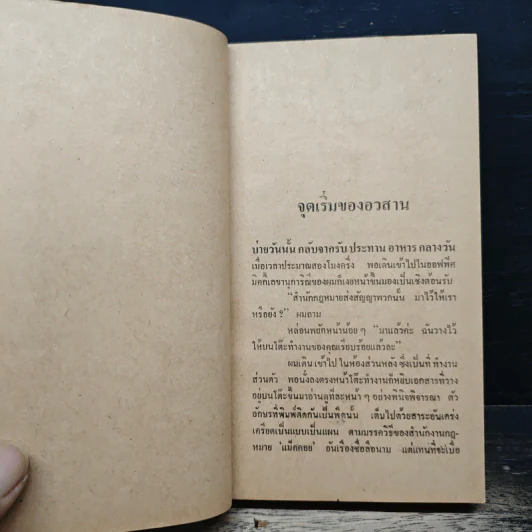 จุดเริ่มของอวสาน
บ่ายวันนั้น กลับจากรับ ประทาน อาหาร กลางวัน
เมื่อเวลาประมาณสองโมงครึ่ง พอเดินเข้าไปในออฟฟิศ
มิคกี้เลขานุการิณีของผมก็เงยหน้าขึ้นมองเป็นเชิงต้อนรับ
“สำนักกฎหมายส่งสัญญาพวกนั้น มาไว้ให้เรา
หรือยัง ?” ผมถาม
หล่อนพยักหน้าน้อย ๆ “มาแล้วค่ะ ฉันวางไว้
ให้บนโต๊ะทำงานของคุณเรียบร้อยแล้วละ”
ผมเดิน เข้าไป ในห้องส่วนหลัง ซึ่งเป็นที่ ทำงาน
ส่วนตัว พอนั่งลงตรงหน้าโต๊ะทำงานก็หยิบเอกสารที่วาง
อยู่บนโต๊ะขึ้นมาอ่านดูทีละหน้า ๆ อย่างพินิจพิจารณา ตัว
อักษรที่พิมพ์ติดกันเป็นพืดนั้น เต็มไปด้วยสาระอันเคร่ง
เครียดเป็นแบบเป็นแผน ตามบรรควิธีของสำนักงานกฎ-
หมาย ‘แม็คคอย’ อันเรื่องชื่อลือนาม แต่แทนที่จะเบื่อ